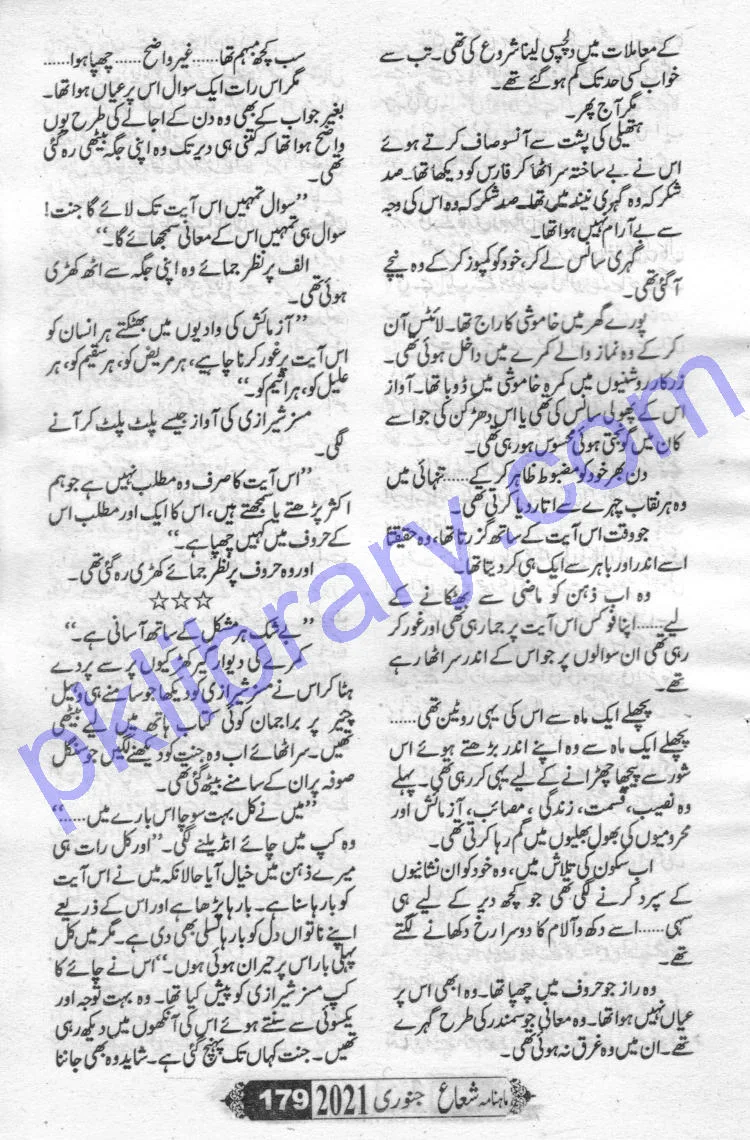 کے معاملات میں دلچسپی لینا شروع کی تھی۔ تب سے
خواب کسی حد تک کم ہو گئے تھے۔
مگر آج پھر۔
ہتھیلی کی پشت سے آنسو صاف کرتے ہوئے
اس نے بے ساختہ سر اٹھا کر فارس کو دیکھا تھا۔ صد
شکر کہ وہ گہری نیند میں تھا۔ صد شکر کہ وہ اس کی وجہ
سے بے آرام نہیں ہوا تھا۔
گہری سانس لے کر، خود کو کمپوز کر کے وہ نیچے
آ گئی تھی۔
پورے گھر میں خاموشی کا راج تھا۔ لائٹس آن
کر کے وہ نماز والے کمرے میں داخل ہوئی تھی۔
زرکار روشنیوں میں کمرہ خاموشی میں ڈوبا تھا۔ آواز
اس کے پھولی سانس کی تھی یا اس دھڑکن کی جو اسے
کان میں گونجتی ہوئی محسوس ہو رہی تھی۔
دن بھر خود کو مضبوط ظاہر کر کے...... تنہائی میں
وہ ہر نقاب چہرے سے اتار دیا کرتی تھی۔
جو وقت اس آیت کے ساتھ گزرتا تھا، وہ حقیقتاً
اسے اندر اور باہر سے ایک ہی کر دیتا تھا۔
وہ اب ذہن کو ماضی سے بھٹکانے کے
لیے...... اپنا فوکس اس آیت پر جما رہی تھی اور غور کر
رہی تھی ان سوالوں پر جو اس کے اندر سر اٹھا رہے
تھے۔
پچھلے ایک ماہ سے اس کی یہی روٹین تھی......
پچھلے ایک ماہ سے وہ اپنے اندر بڑھتے ہوئے اس
شور سے پیچھا چھڑانے کے لیے یہی کر رہی تھی۔ پہلے
وہ نصیب، قسمت، زندگی، مصائب، آزمائش اور
محرومیوں کی بھول بھلیوں میں گم رہا کرتی تھی۔
اب سکون کی تلاش میں، وہ خود کو ان نشانیوں
کے سپرد کرنے لگی تھی جو کچھ دیر کے لیے ہی
سہی...... اسے دکھ و آلام کا دوسرا رخ دکھانے لگتے
تھے۔
وہ راز جو حروف میں چھپا تھا۔ وہ ابھی اس پر
عیاں نہیں ہوا تھا۔ وہ معانی جو سمندر کی طرح گہرے
تھے۔ ان میں وہ غرق نہ ہوئی تھی۔
سب کچھ مبہم تھا...... غیر واضح...... چھپا ہوا......
مگر اس رات ایک سوال اس پر عیاں ہوا تھا۔
بغیر جواب کے بھی وہ دن کے اجالے کی طرح یوں
واضح ہوا تھا کہ کتنی ہی دیر تک وہ اپنی جگہ بیٹھی رہ گئی
تھی۔
”سوال تمہیں اس آیت تک لائے گا جنت!
سوال ہی تمہیں اس کے معانی سمجھائے گا۔“
الف پر نظر جمائے وہ اپنی جگہ سے اٹھ کھڑی
ہوئی تھی۔
”آزمائش کی وادیوں میں بھٹکتے ہر انسان کو
اس آیت پر غور کرنا چاہیے، ہر مریض کو، ہر سقیم کو، ہر
علیل کو، ہر اثیم کو۔“
مسز شیرازی کی آواز جیسے پلٹ پلٹ کر آنے
لگی۔
”اس آیت کا صرف وہ مطلب نہیں ہے جو ہم
اکثر پڑھتے یا سمجھتے ہیں، اس کا ایک اور مطلب اس
کے حروف میں کہیں چھپا ہے۔“
اور وہ حروف پر نظر جمائے کھڑی رہ گئی تھی۔
☆☆☆
”بے شک ہر مشکل کے ساتھ آسانی ہے۔“
کمرے کی دیوار گیر کھڑکیوں پر سے پردے
ہٹا کر اس نے مسز شیرازی کو دیکھا جو سامنے ہی وہیل
چیئر پر براجمان کوئی کتاب ہاتھ میں لیے بیٹھی
تھیں۔ سر اٹھائے اب وہ جنت کو دیکھنے لگیں جو سنگل
صوفہ پر ان کے سامنے بیٹھ گئی تھی۔
”میں نے کل بہت سوچا اس بارے میں......“
وہ کپ میں چائے انڈیلنے لگی۔ ”اور کل رات ہی
میرے ذہن میں خیال آیا حالانکہ میں نے اس آیت
کو بارہا سنا ہے۔ بارہا پڑھا ہے اور اس کے ذریعے
اپنے ناتواں دل کو بارہا تسلی بھی دی ہے۔ مگر میں کل
پہلی بار اس پر حیران ہوئی ہوں۔“ اس نے چائے کا
کپ مسز شیرازی کو پیش کیا تھا۔ وہ بہت توجہ اور
یکسوئی سے سنتے ہوئے اس کی آنکھوں میں دیکھ رہی
تھیں۔ جنت کہاں تک پہنچ گئی ہے۔ شاید وہ بھی جاننا
ماہنامہ شعاع جنوری 2021 179
pklibrary.com